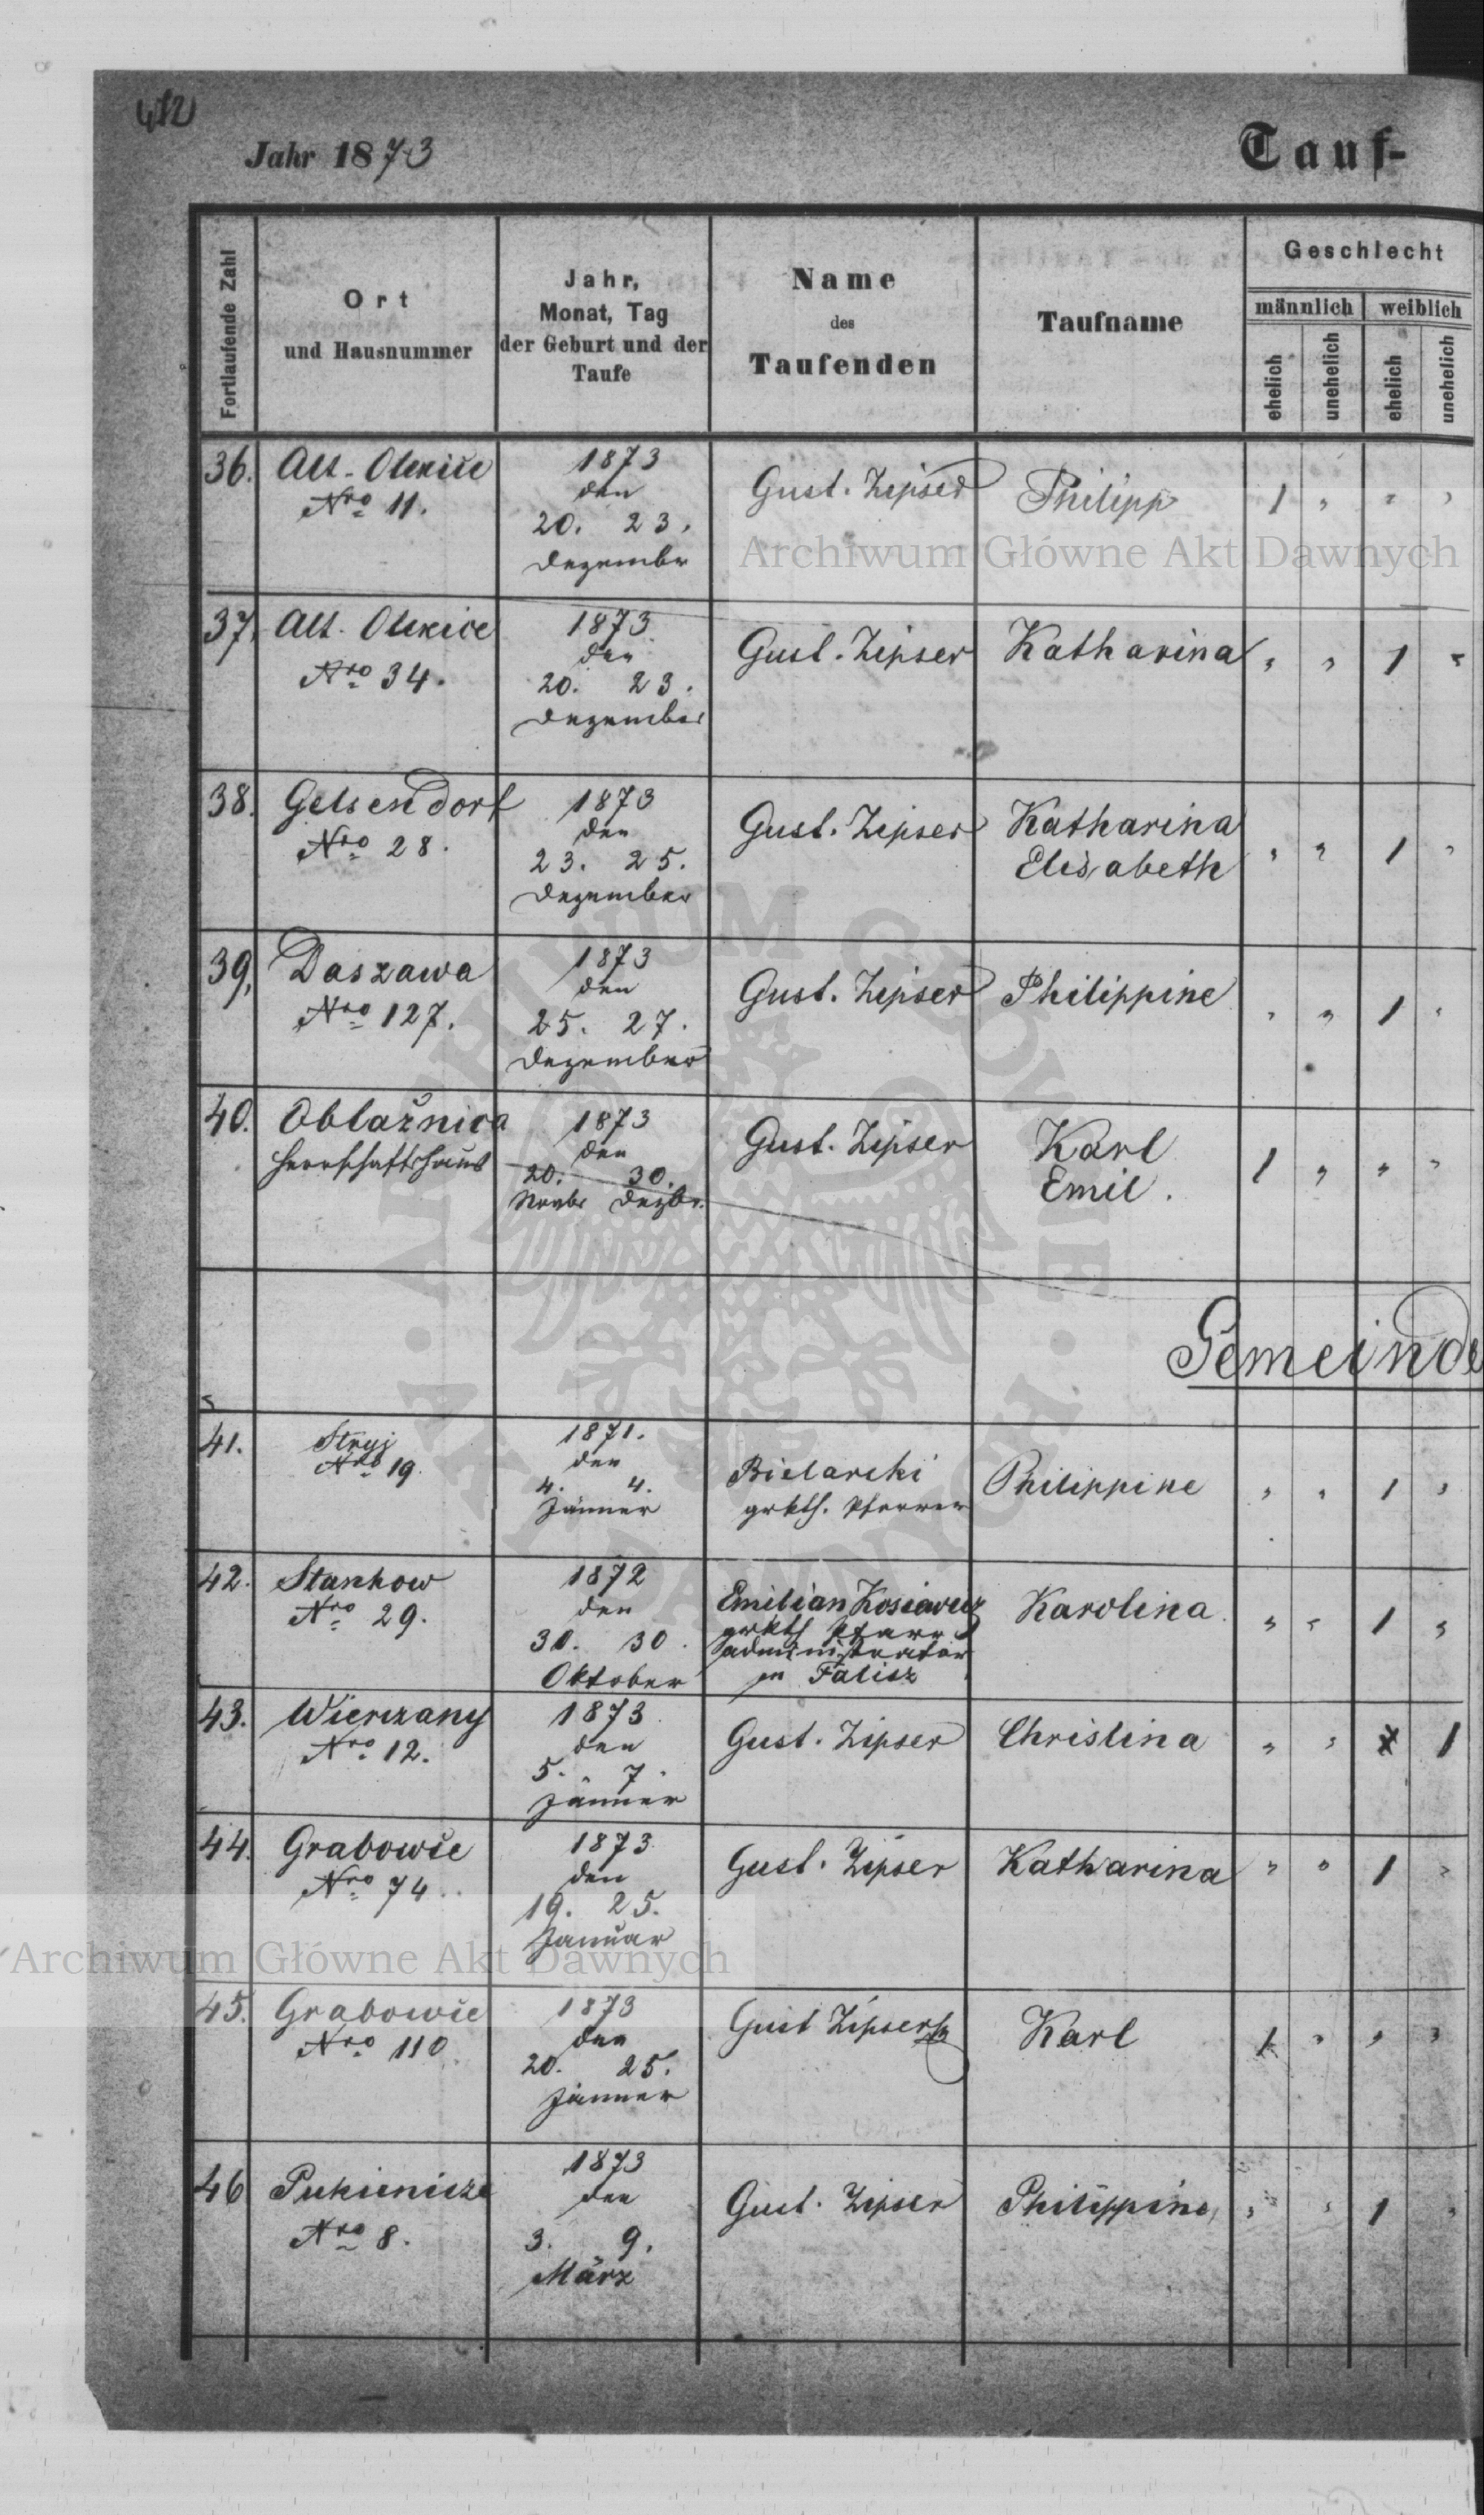 412
Jahr 1873
Tauf-
Fortlaufende Zahl
Ort
und Hausnummer
Jahr,
Monat, Tag
der Geburt und der
Taufe
Name
des
Taufenden
Taufname
Geschlecht
männlich
weiblich
ehelich
unehelich
ehelich
unehelich
36. Alt-Olexice
Nro 11.
1873
den
20. 23.
Dezember
Gust. Zipser
Philipp
1 " " "
37. Alt-Olexice
Nro 34.
1873
den
20. 23.
Dezember
Gust. Zipser
Katharina
" " 1 "
38. Gelsendorf
Nro 28.
1873
den
23. 25.
Dezember
Gust. Zipser
Katharina
Elisabeth
" " 1 "
39. Daszawa
Nro 127.
1873
den
25. 27.
Dezember
Gust. Zipser
Philippine
" " 1 "
40. Oblaźnica
Herrschaftshaus
1873
den
20. 30.
Novbr Dezbr.
Gust. Zipser
Karl
Emil.
1 " " "
Gemeinde
41. Stryj
Nro 19.
1871.
den
4. 4.
Jänner
Bielarski
grkth. Pfarrer
Philippine
" " 1 "
42. Stankow
Nro 29.
1872
den
30. 30.
Oktober
Emilian
grkth Pfarr
administrator
in Falisz
Karolina.
" " 1 "
43. Wierczany
Nro 12.
1873
den
5. 7.
Jänner
Gust. Zipser
Christina
" " 1
44. Grabowce
Nro 74.
1873
den
19. 25.
Januar
Gust. Zipser
Katharina
" " 1 "
45. Grabowce
Nro 110
1873
den
20. 25.
Jänner
Gust Zipser
Karl
1 " " "
46 Pukienicze
Nro 8.
1873
den
3. 9.
März
Gust. Zipser
Philippine
" " 1 "
Archiwum Główne Akt Dawnych
Archiwum Główne Akt Dawnych
ARCHIWUM GŁÓWNE
AKT DAWNYCH